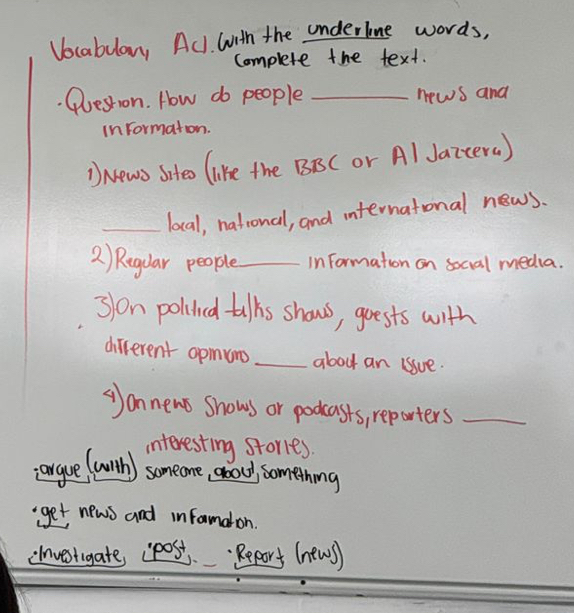 Vocabulary Act. With the underline words,
Complete the text.
·Question. How do people ________ news and
information.
1) News Sites (like the BBC or Al Jazeera)
_____ local, national, and international news.
2) Regular people _____ information on social media.
3) On political talks shows, guests with
different opinions _____ about an issue.
4) On news shows or podcasts, reporters _____
interesting stories.
·argue (with) someone about something
·get news and information.
·Investigate, ·post, _ ·Report (news)